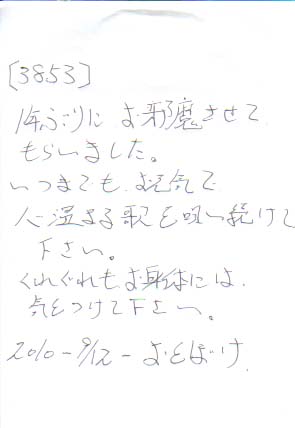 [3853]
1年ぶりにお邪魔させて
もらいました。
いつまでも、お元気で
人温まる歌を唄い続けて
下さい。
くれぐれもお身体には、
気をつけて下さい。
2010-9/12-おとぼけ